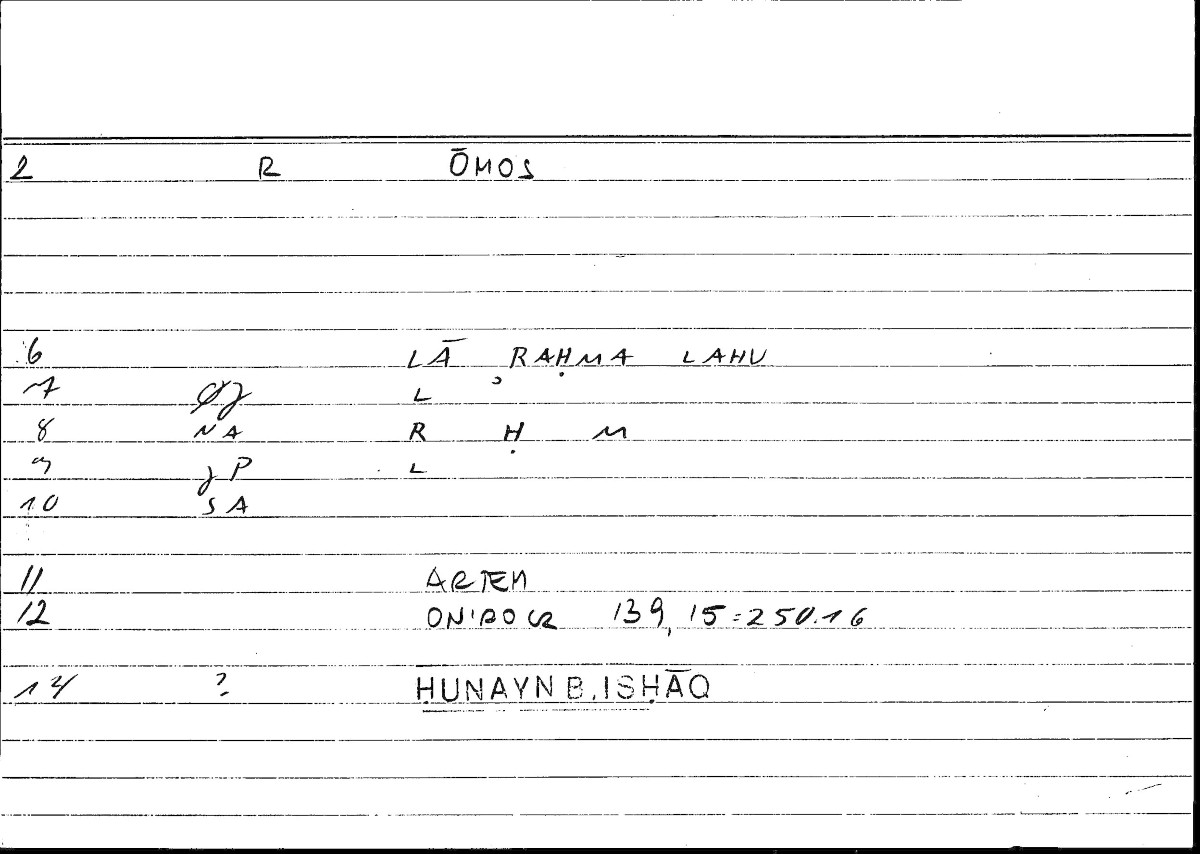 2 R ŌMOS
6 LĀ RAḤMA LAHU
7 L
8 NA R Ḥ M
9 JP L
10 SA
11 ARTEM
12 ONIROCR 139, 15=250.16
14 ? ḤUNAYN B. ISḤĀQ